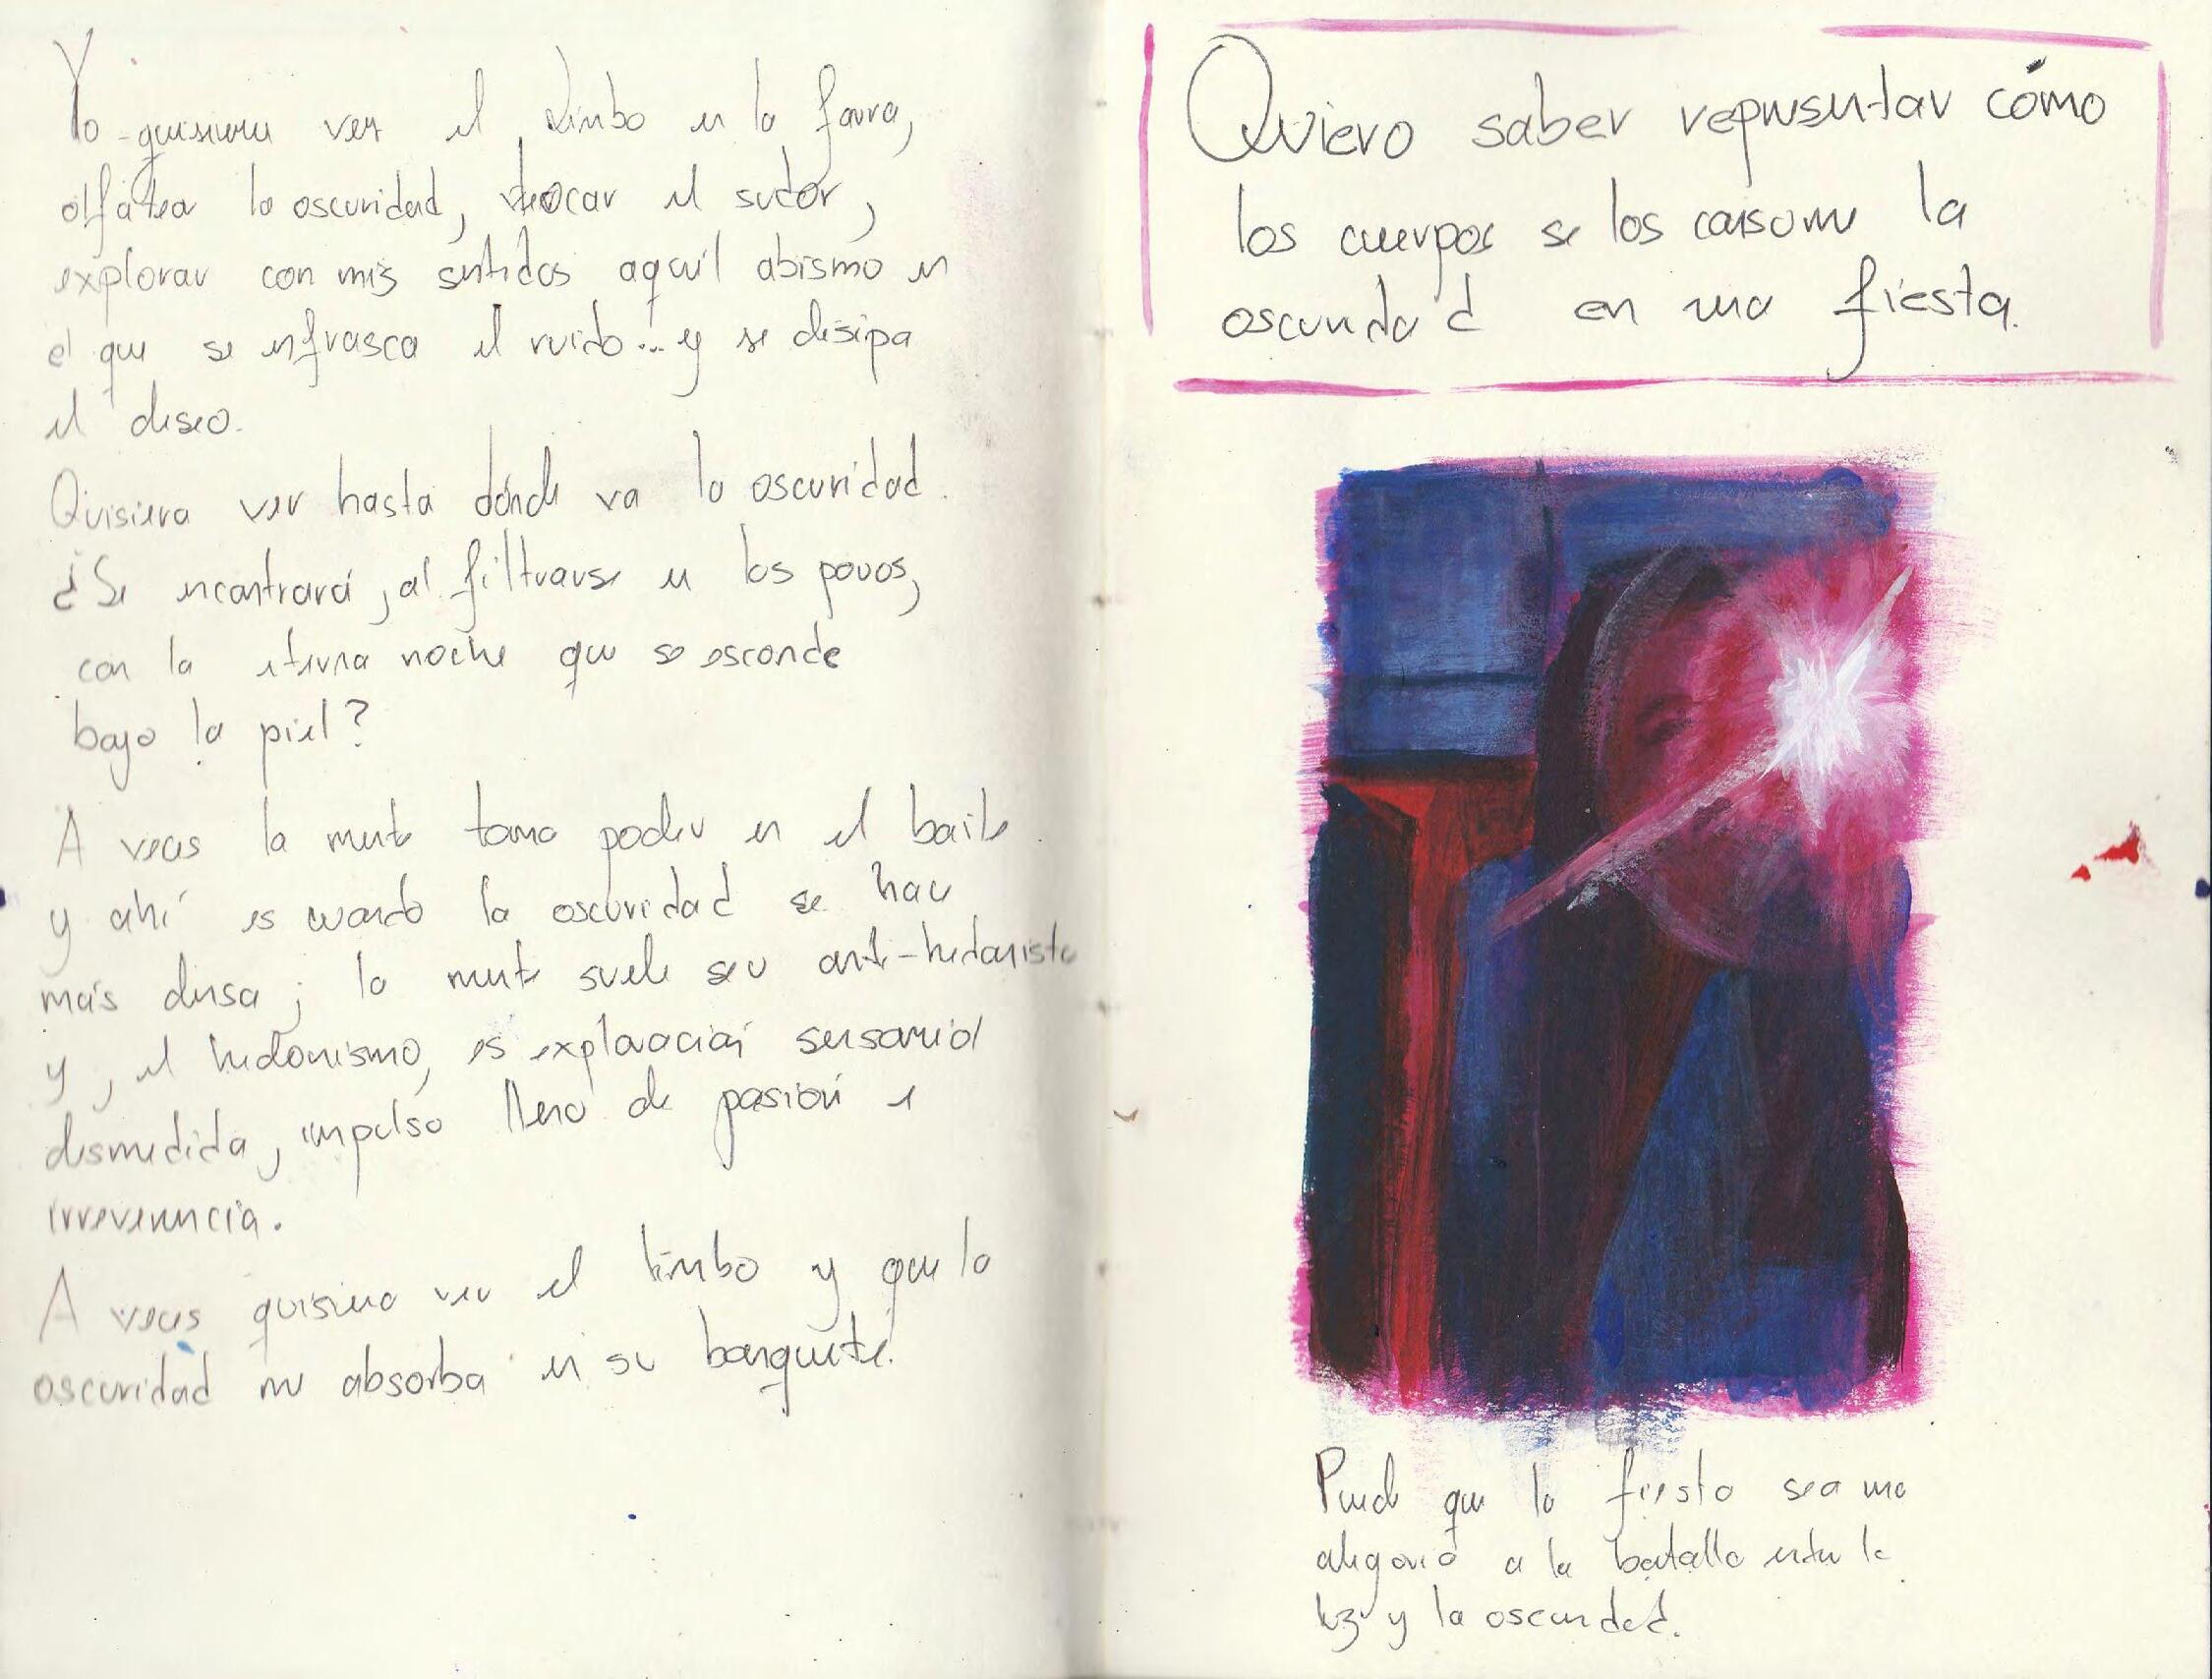 Yo quisiera ver el limbo en la farra,
olfatear la oscuridad, tocar el sudor,
explorar con mis sentidos aquel abismo en
el que se enfrasca el ruido... y se disipa
el deseo.
Quisiera ver hasta dónde va la oscuridad.
¿Se encontrará, al filtrarse en los poros,
con la eterna noche que se esconde
bajo la piel?
A veces la mente toma poder en el baile
y ahí es cuando la oscuridad se hace
más densa; la mente suele ser anti-hedonista
y, el hedonismo, es exploración sensorial
desmedida, impulso lleno de pasión e
irreverencia.
A veces quisiera ver el limbo y que la
oscuridad me absorba en su banquete.
Quiero saber representar cómo
los cuerpos se los consume la
oscuridad en una fiesta.
Puede que la fiesta sea una
alegoría a la batalla entre la
luz y la oscuridad.